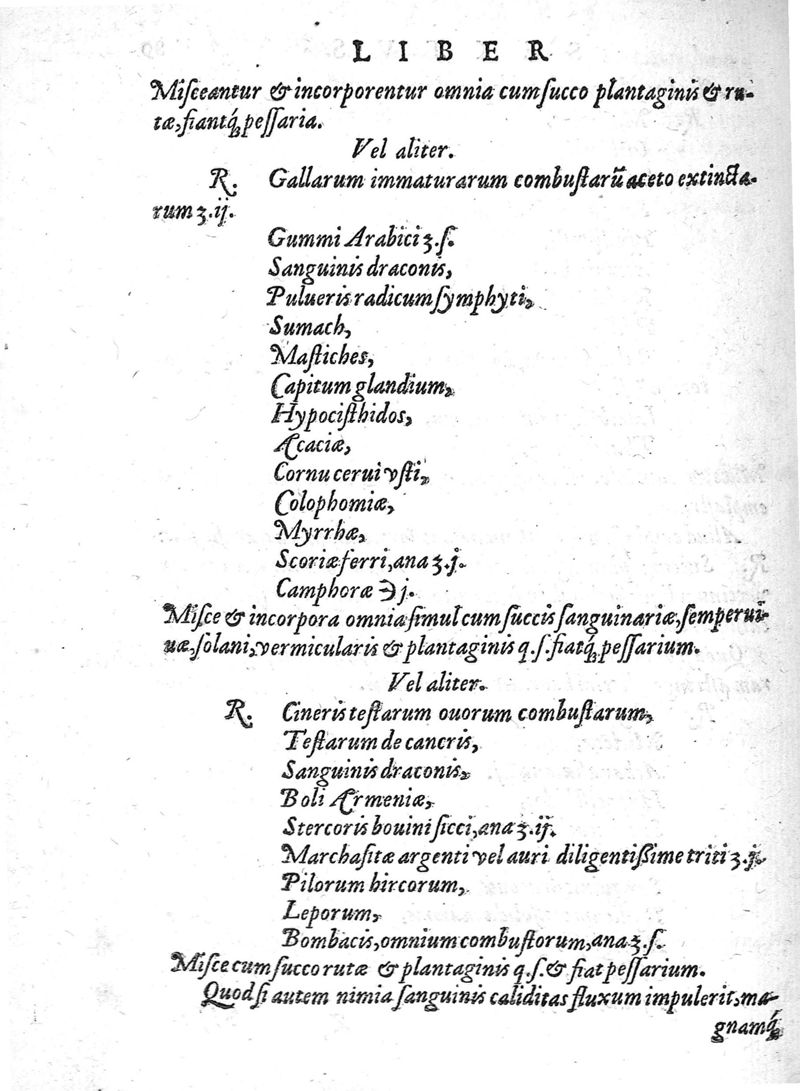 LIBER
Miſceantur & incorporentur omnia cum ſucco plantaginis & ru-
tæ, fiantq́ʒ peſſaria.
Vel aliter.
R. Gallarum immaturarum combuſtarū aceto extincta-
rum ʒ.ij.
Gummi Arabici ʒ.ſ.
Sanguinis draconis,
Pulueris radicum ſymphyti,
Sumach,
Maſtiches,
Capitum glandium,
Hypociſthidos,
Acaciæ,
Cornu cerui vſti,
Colophomiæ,
Myrrhæ,
Scoriæ ferri, ana ʒ.j.
Camphoræ ℈ j.
Miſce & incorpora omnia ſimul cum ſuccis ſanguinariæ, ſemperui-
uæ, ſolani, vermicularis & plantaginis q.ſ. fiatq́ʒ peſſarium.
Vel aliter.
R. Cineris teſtarum ouorum combuſtarum,
Teſtarum de cancris,
Sanguinis draconis,
Boli Armeniæ,
Stercoris bouini ſicci, ana ʒ.ij.
Marchaſitæ argenti vel auri diligentißime triti ʒ.j.
Pilorum hircorum,
Leporum,
Bombacis, omnium combuſtorum, ana ʒ.ſ.
Miſce cum ſucco rutæ & plantaginis q.ſ. & fiat peſſarium.
Quod ſi autem nimia ſanguinis caliditas fluxum impulerit, ma-
gnamq́ʒ